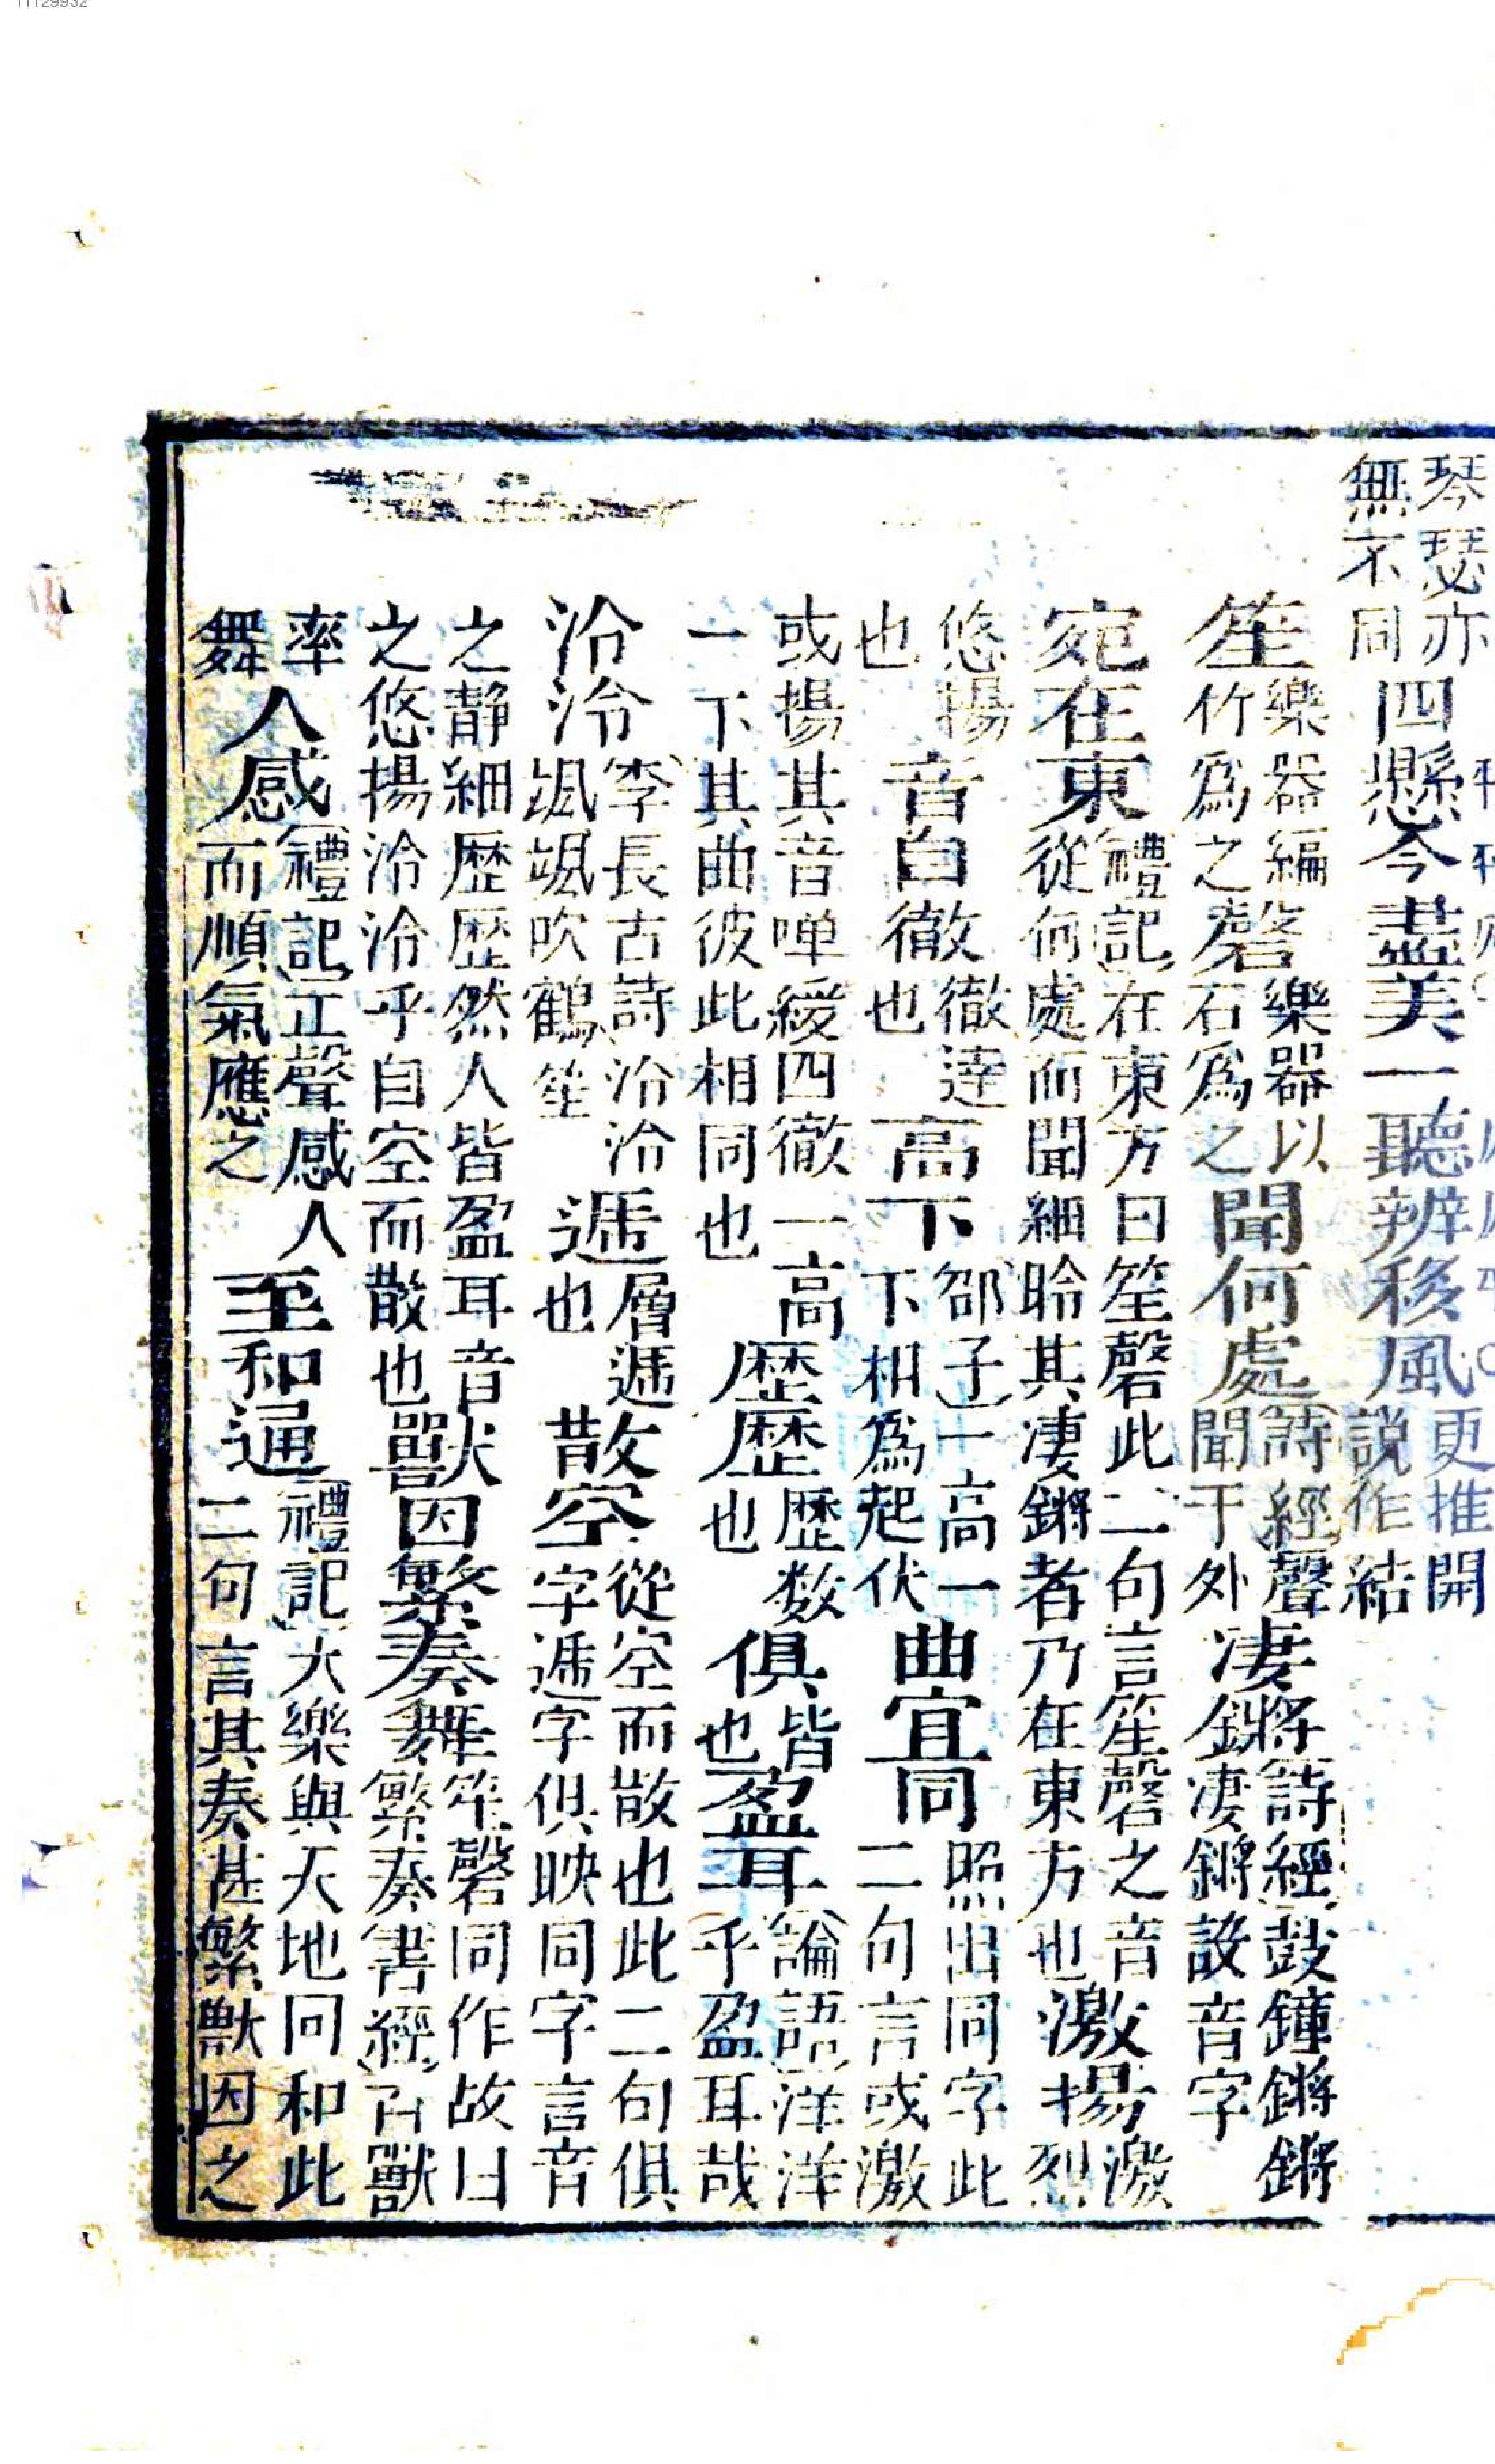 琴瑟亦無不同四懸今盡美一聽辨移風更推開說作結
笙樂器編竹爲之磬樂器以石爲之聞何處詩經聲聞于外凄鏘詩經鼓鐘鏘鏘凄鏘設音字
宛在東禮記在東方曰笙磬此二句言笙磬之音從何處而聞細聆其凄鏘者乃在東方也激揚激烈
悠揚也音自徹徹達也高下邵子一高一下相爲起伏曲宜同照出同字此二句言或激
或揚其音嘽緩四徹一高一下其曲彼此相同也歴歴歴数也俱皆也盈耳論語洋洋乎盈耳哉
泠泠李長古詩泠泠颯颯吹鶴笙遞層遞也散空從空而散也此二句俱字遞字俱映同字言音
之静細歴歴然人皆盈耳音之悠揚泠泠乎自空而散也獸因繁奏舞笙磬同作故曰繁奏書經百獸
率舞人感禮記正聲感人而順氣應之至和通禮記大樂與天地同和此二句言其奏甚繁獸因之